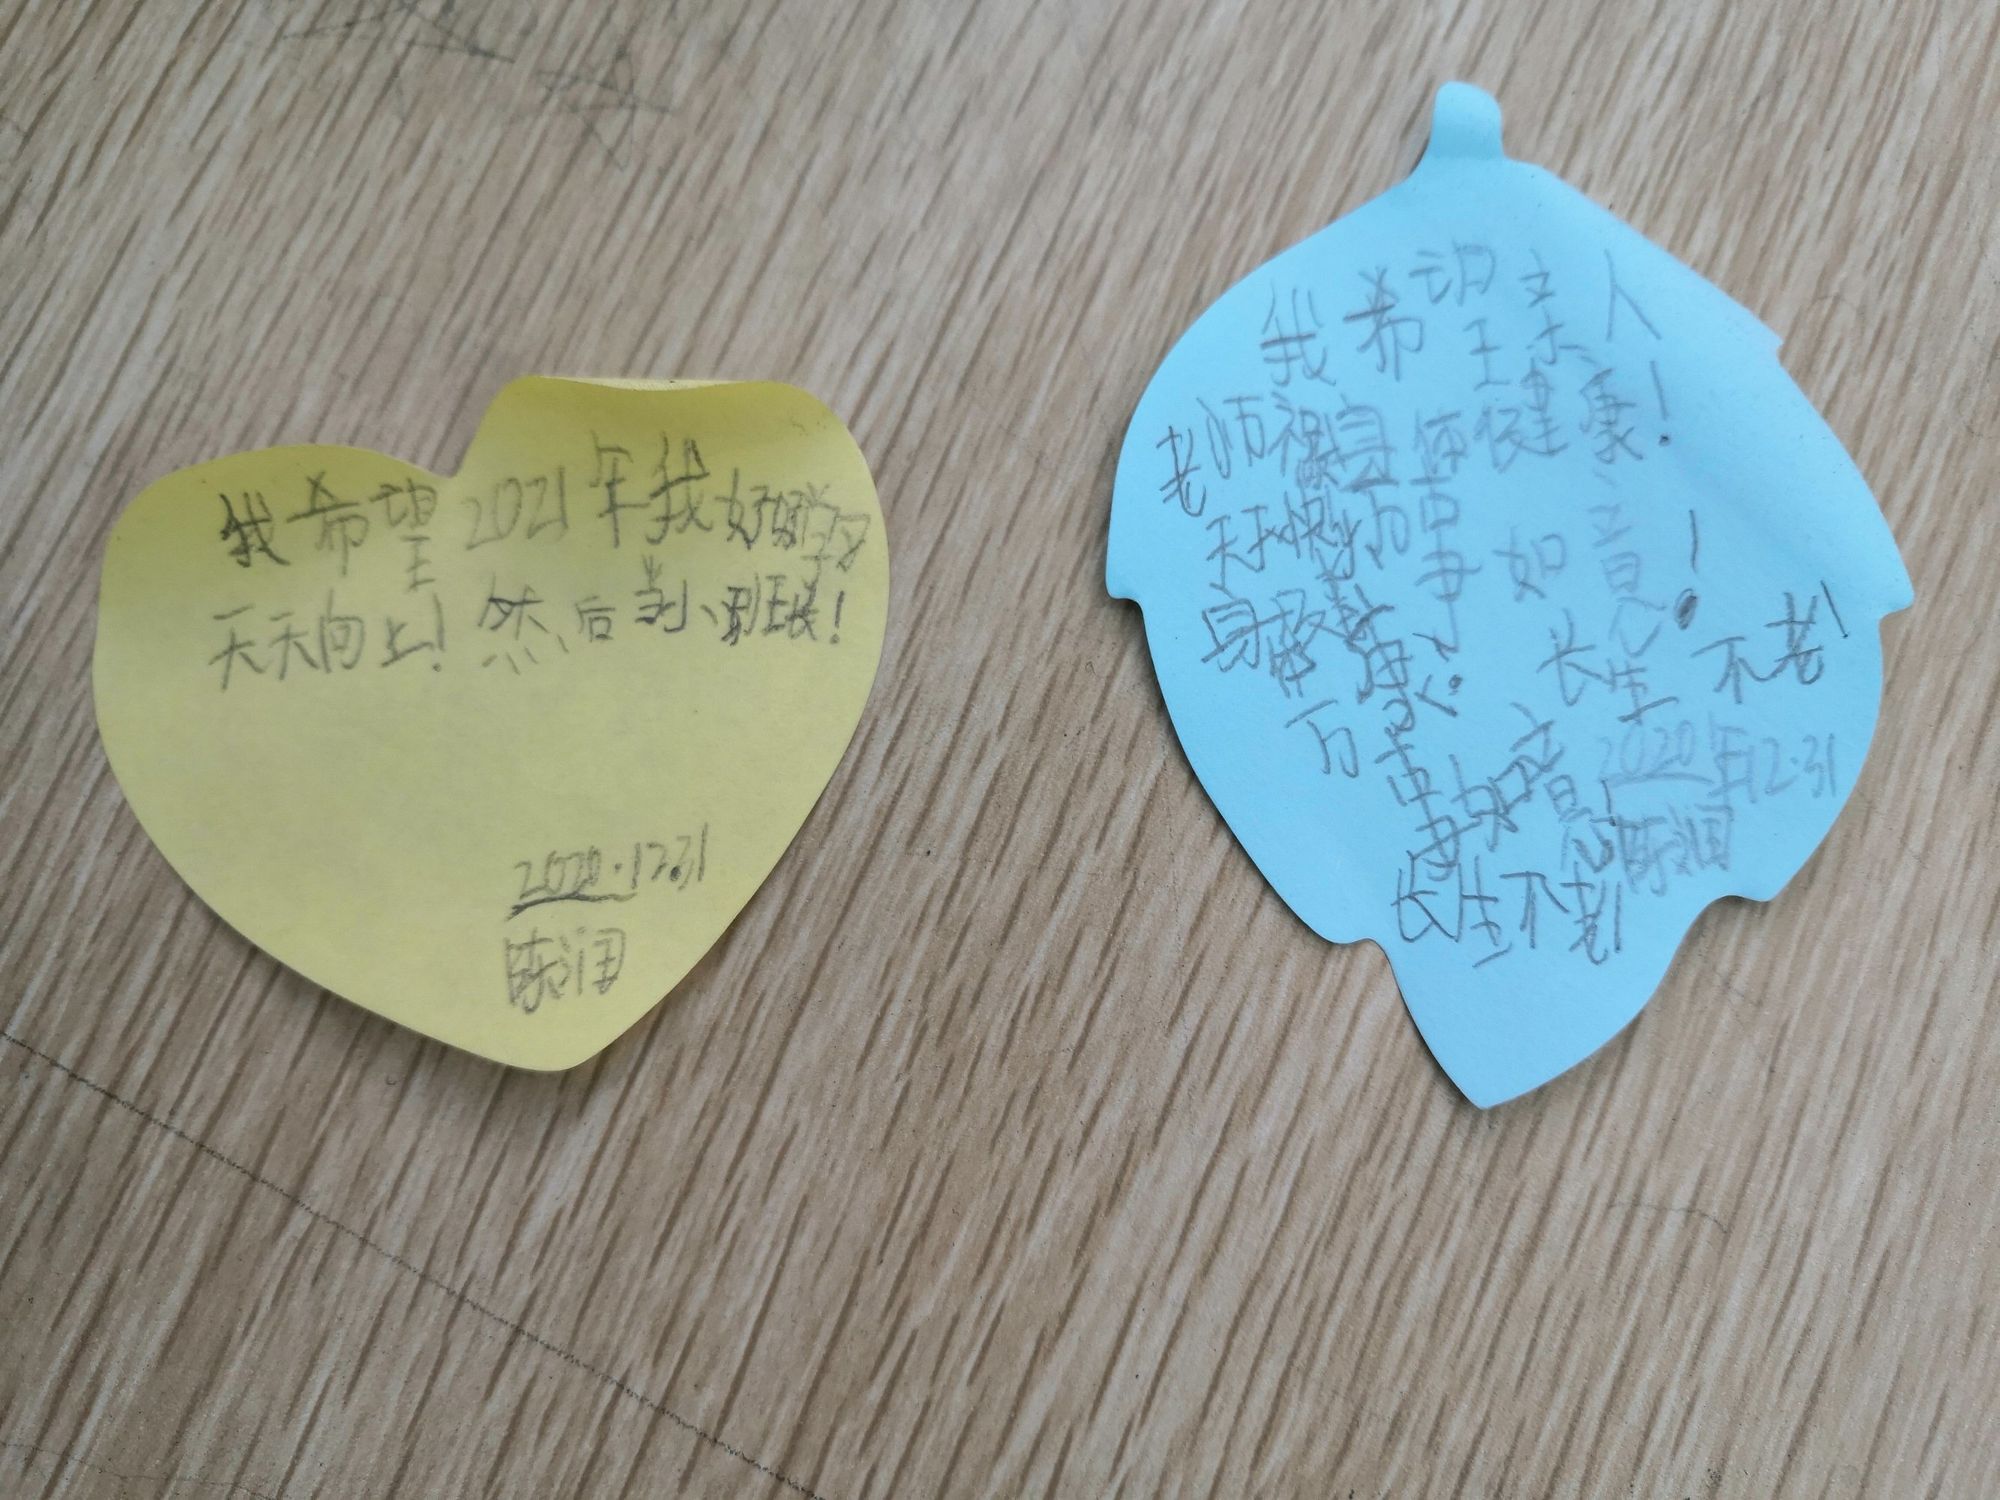 我希望2021年我好好学习
天天向上！然后当小班长！
2020.12.31
陈润
我希望亲人
老师福身体健康！
天天快乐万事如意！
身体健康！长生不老！
万事如意！2020年12.31
陈润
长生不老！